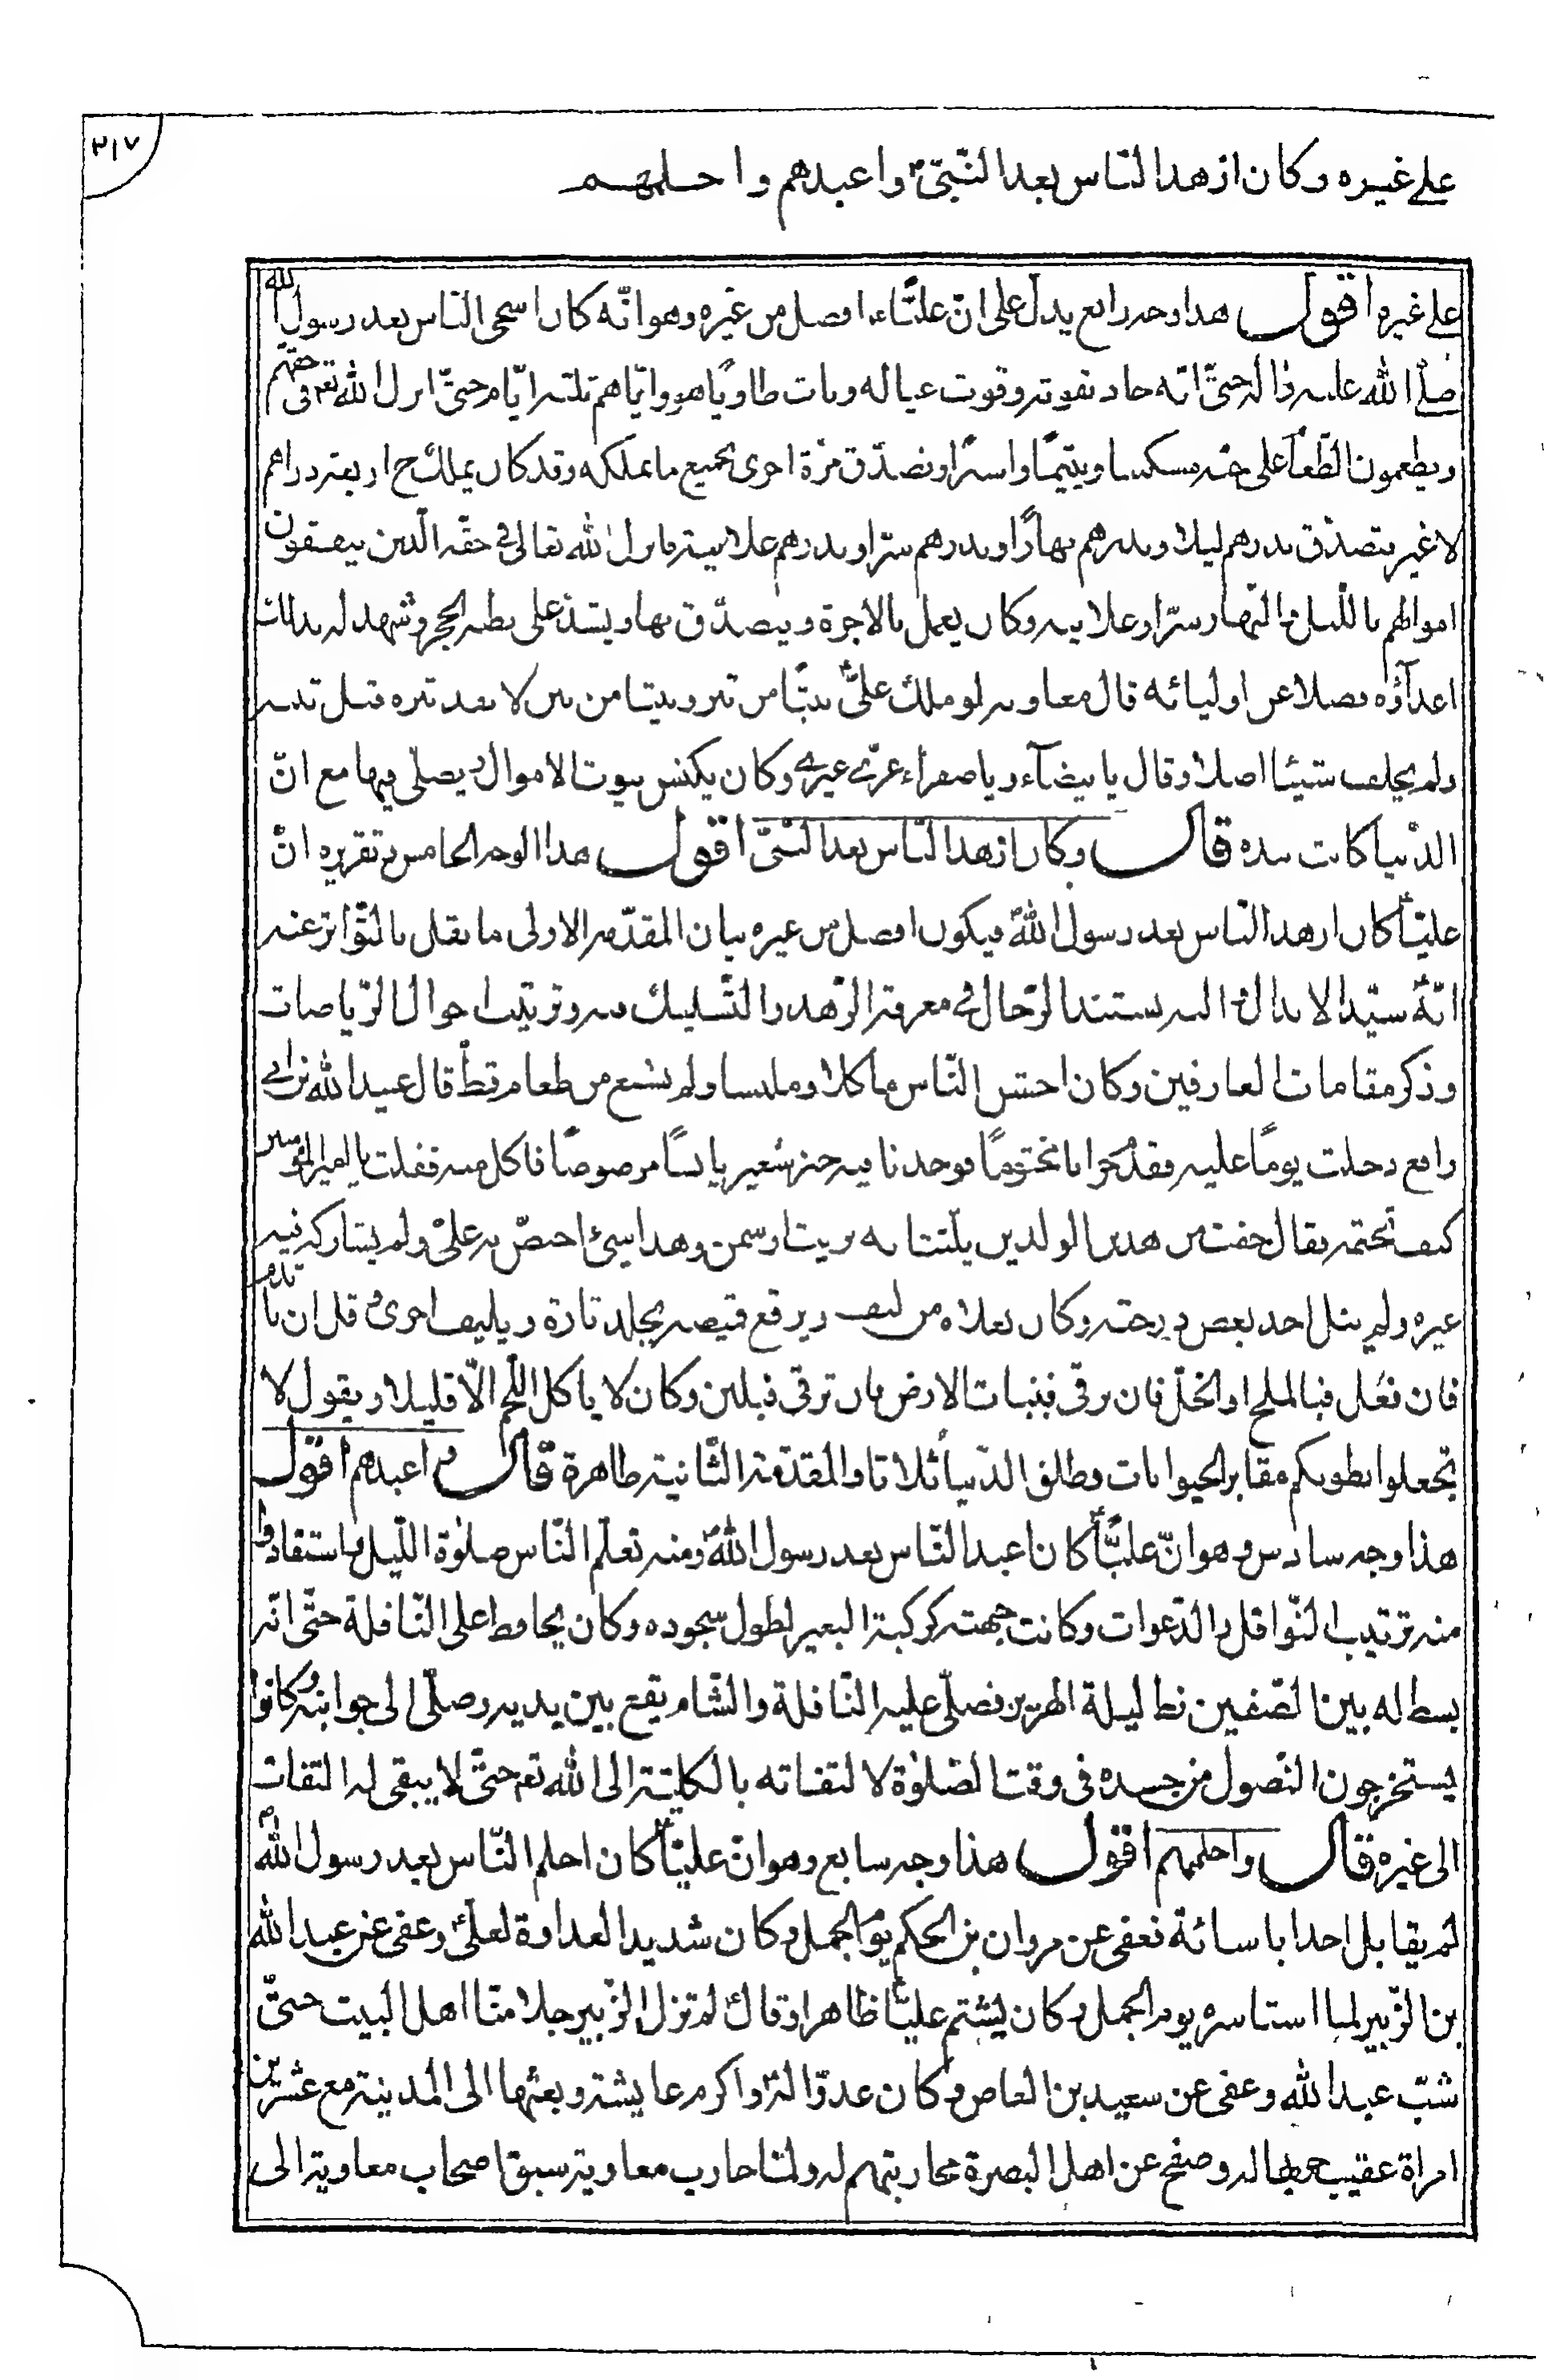 ٣١٧
على غيره وكان ازهد النّاس بعد النّبىّ ص واعبدهم واحلمهم
على غيره اقول هذا وجه رابع يدلّ على انّ عليّا ع افضل من غيره وهو انّه كان اسخى النّاس بعد رسول الله
صلّى الله عليه واله حتّى انّه جاد بقوته وقوت عياله وبات طاويًا هو وايّاهم ثلثة ايّام حتّى انزل الله تعم فى حقهم
ويطعمون الطّعام على حبّه مسكينا ويتيمًا واسيرًا وتصدّق مرّة اخرى بجميع ما يملكه وقد كان يملك ح اربعة دراهم
لا غير فتصدّق بدرهم ليلا وبدرهم نهارًا وبدرهم سرّا وبدرهم علانية فانزل الله تعالى فى حقّه الّذين ينفقون
اموالهم باللّيل والنّهار سرّا وعلانية وكان يعمل بالاجرة ويتصدّق بها ويشدّ على بطنه الحجر وشهد له بذلك
اعدآؤه فضلا عن اوليائه قال معاوية لو ملك علىّ ع بيتًا من تبر وبيتا من تبن لانفد تبره قبل تبنه
ولم يخلف شيئا اصلا وقال يا بيضآء ويا صفراء غرّى غيرى وكان يكنس بيوت الاموال ويصلّى فيها مع انّ
الدّنيا كانت بيده قال وكان ازهد النّاس بعد النّبىّ اقول هذا الوجه الخامس وتقريره انّ
عليّا ع كان ازهد النّاس بعد رسول الله ص فيكون افضل من غيره بيان المقدّمة الاولى ما نقل بالتّواتر عنه
انّه ع سيّد الابدال واليه يستند الرّحال فى معرفة الزّهد والتّسليك فيه وترتيب احوال الرّياضات
وذكر مقامات العارفين وكان اخشن النّاس ماكلا وملبسا ولم يشبع من طعام قطّ قال عبيد الله بن ابى
رافع دخلت يومًا عليه فقدّم جرابا مختومًا فوجدنا فيه خبز شعير يابسًا مرضوضًا فاكل منه فقلت يا امير المؤمنين
كيف تختمه فقال خفت من هذين الولدين يلتّتانه بزيت او سمن وهذا شئ اختصّ به علىّ ع ولم يشاركه فيه
غيره ولم ينل احد بعض درجته وكان نعلاه من ليف ويرقع قميصه بجلد تارة وبليف اخرى وقلّ ان يأتدم
فان فعل فبالملح او الخلّ فان ترقى فبنبات الارض فان ترقى فبلبن وكان لا ياكل اللّحم الّا قليلا ويقول لا
تجعلوا بطونكم مقابر الحيوانات وطلق الدّنيا ثلاثا والمقدّمة الثّانية ظاهرة قال واعبدهم اقول
هذا وجه سادس وهو انّ عليّا ع كان اعبد النّاس بعد رسول الله ص ومنه تعلّم النّاس صلوة اللّيل واستفادوا
منه ترتيب النّوافل والدّعوات وكانت جبهته كركبة البعير لطول سجوده وكان يحافظ على النّافلة حتّى انّه
بسط له بين الصّفين نطع ليلة الهرير فصلّى عليه النّافلة والسّهام يقع بين يديه وصلّى الى جوانبه وكانوا
يستخرجون النّصول من جسده فى وقت الصّلوة لالتفاته بالكليّة الى الله تعم حتّى لا يبقى له التفات
الى غيره قال واحلمهم اقول هذا وجه سابع وهو انّ عليّا ع كان احلم النّاس بعد رسول الله ص
لم يقابل احدا باسائة فعفى عن مروان بن الحكم يوم الجمل وكان شديد العداوة لعلىّ ع وعفى عن عبد الله
بن الزّبير لما استاسره يوم الجمل وكان يشتم عليّا ع ظاهرا وقال ع لم تزل الزّبير رجلا منّا اهل البيت حتّى
شبّ عبد الله وعفى عن سعيد بن العاص وكان عدوّا له ع واكرم عايشة وبعثها الى المدينة مع عشرين
امراة عقيب حربها له وصفح عن اهل البصرة محاربتهم له ولمّا حارب معاوية سبق اصحاب معاوية الى